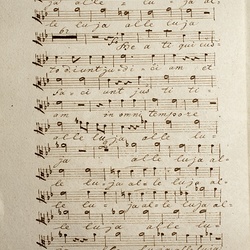 ja alle lu ja
le lu ja alle lu ja
Be a ti qui cus=
to diunt ju= di ci um et
fa= ci unt jus ti ti=
am in omni tempore
alle lu ja alle lu=
ja alle luja al=
le lu= ja al= le lu ja al=
le lu ja= al= le lu ja al=
le lu ja alle lu=